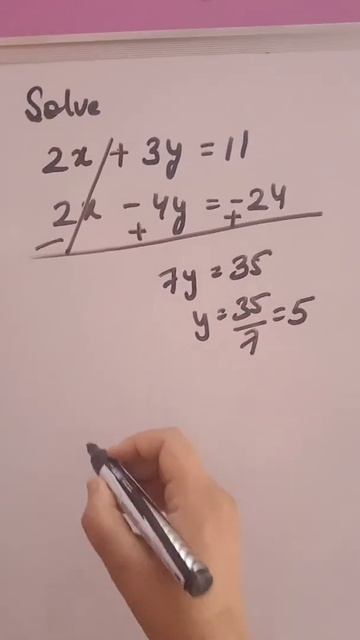 Solve
2x + 3y = 11
2x - 4y = -24
- + +
7y = 35
y = 35/7 = 5